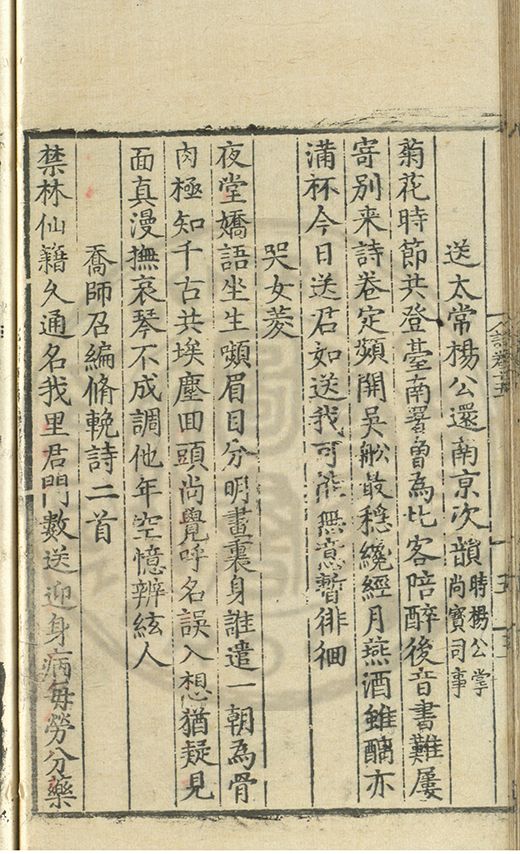 送太常楊公還南京次韻時楊公掌尚寶司事
菊花時節共登臺南署曾為比客陪醉後音書難屢
寄別来詩卷定頻開吳舩最穩纔經月燕酒雖醨亦
滿杯今日送君如送我可能無意暫徘徊
哭女菱
夜堂嬌語坐生嚬眉目分明畫裏身誰遣一朝為骨
肉極知千古共埃塵回頭尚覺呼名誤入想猶疑見
面真漫撫哀琴不成調他年空憶辨絃人
喬師召編脩輓詩二首
禁林仙籍久通名我里君門數送迎身病每勞分藥